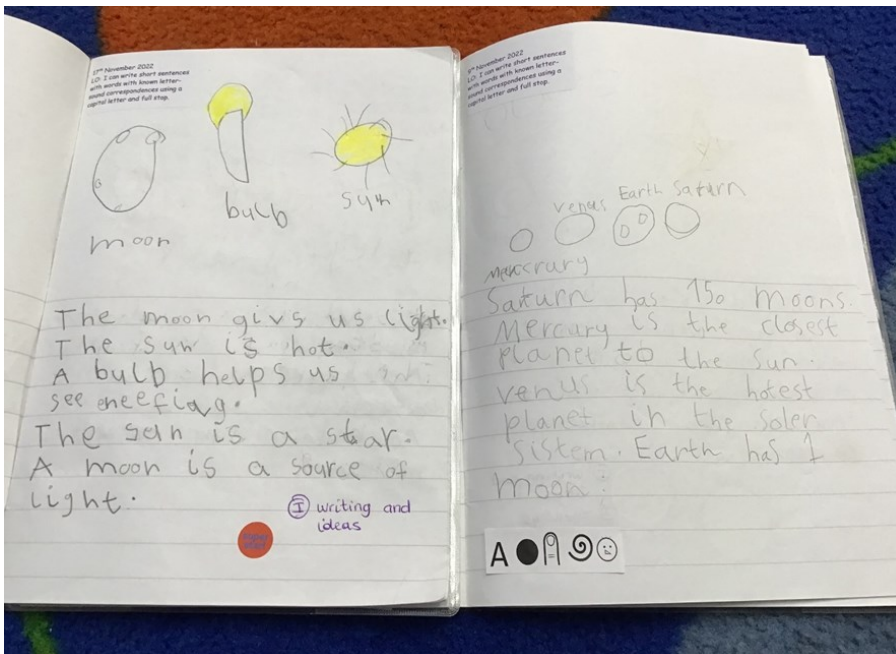 17th November 2022
LO: I can write short sentences
with words with known letter-
sound correspondences using a
capital letter and full stop.
moon
bulb
sun
The moon givs us light.
The sun is hot.
A bulb helps us
see eneefing.
The sun is a star.
A moon is a source of
light.
I writing and
ideas
November 2022
LO: I can write short sentences
with words with known letter-
sound correspondences using a
capital letter and full stop.
venus Earth Saturn
Saturn has 150 moons.
Mercury is the closest
planet to the sun.
venus is the hotest
planet in the soler
sistem. Earth has 1
moon.
A